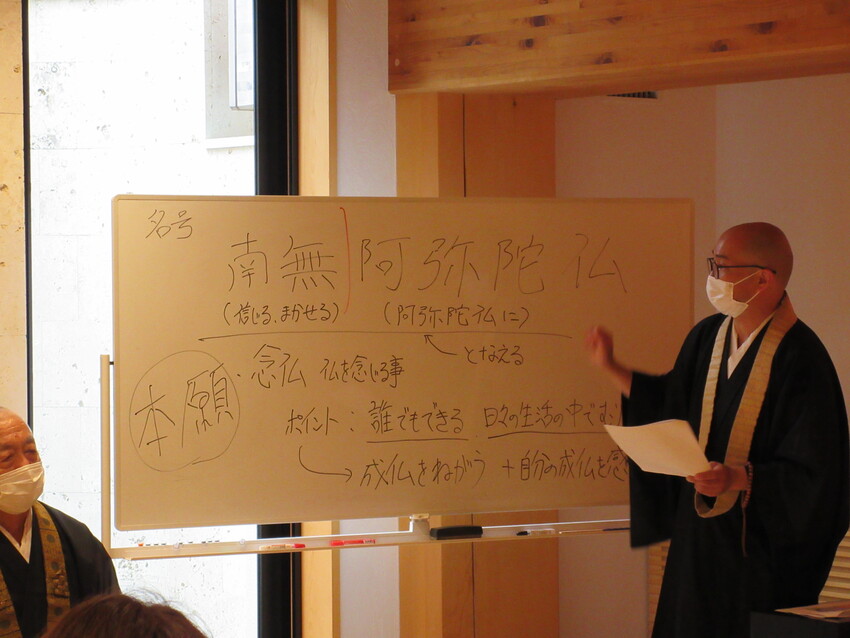 名号
南無 阿弥陀仏
(信じる、まかせる) (阿弥陀仏に)
となえる
本願
・念仏 仏を念じる事
ポイント：誰でもできる 日々の生活の中で
→成仏をねがう ＋自分の成仏を